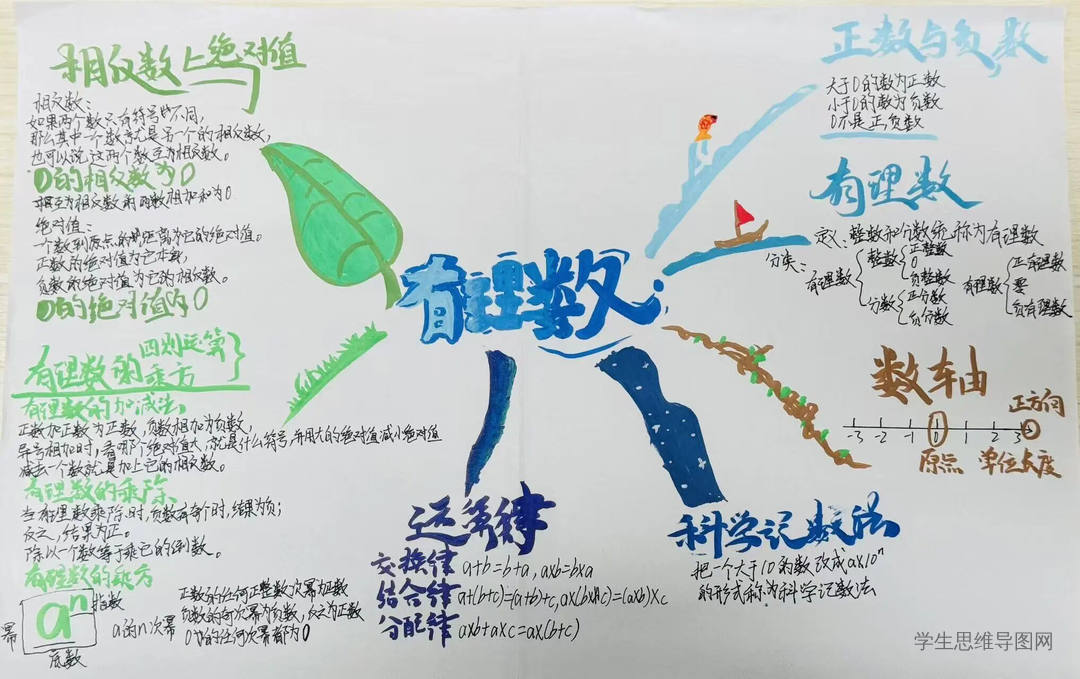 相反数与绝对值
相反数：
如果两个数只有符号不同，
那么其中一个数就是另一个的相反数，
也可以说这两个数互为相反数。
0的相反数为0
相互为相反数的两数相加和为0
绝对值：
一个数到原点的距离为它的绝对值。
正数的绝对值为它本数，
负数的绝对值为它的相反数。
0的绝对值为0
有理数的四则运算
乘方
有理数的加减法：
正数加正数为正数，负数相加为负数，
异号相加时，看哪个绝对值大，就是什么符号，并用大的绝对值减小绝对值
减去一个数就是加上它的相反数。
有理数的乘除：
当有理数乘除时，负数有奇个时，结果为负；
反之，结果为正。
除以一个数等于乘它的倒数。
有理数的乘方
幂
aⁿ
指数
底数
a的n次幂
正数的任何正整数次幂为正数
负数的奇次幂为负数，反之为正数
0的任何次幂都为0
有理数
正数与负数
大于0的数为正数
小于0的数为负数
0不是正负数
有理数
定义：整数和分数统称为有理数
分类：
有理数
整数
正整数
0
负整数
分数
正分数
负分数
有理数
正有理数
零
负有理数
数轴
正方向
-3 -2 -1 0 1 2 3
原点 单位长度
运算律
交换律 a+b=b+a，a×b=b×a
结合律 a+(b+c)=(a+b)+c，a×(b×c)=(a×b)×c
分配律 a×b+a×c=a×(b+c)
科学记数法
把一个大于10的数改成a×10ⁿ
的形式称为科学记数法
学生思维导图网